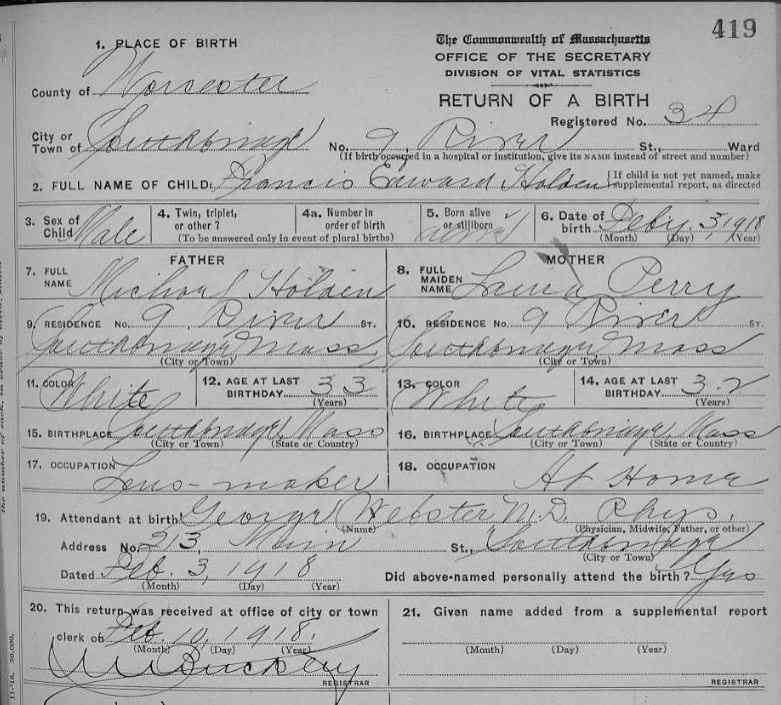 419
1. PLACE OF BIRTH
The Commonwealth of Massachusetts
OFFICE OF THE SECRETARY
DIVISION OF VITAL STATISTICS
RETURN OF A BIRTH
County of Worcester
Registered No. 34
City or
Town of Southbridge No. 9, River St., Ward
(If birth occurred in a hospital or institution, give its NAME instead of street and number)
2. FULL NAME OF CHILD. Francis Edward Holden
If child is not yet named, make
supplemental report, as directed
3. Sex of
Child Male
4. Twin, triplet,
or other?
4a. Number in
order of birth
(To be answered only in event of plural births)
5. Born alive
or stillborn
6. Date of
birth
3, 1918
(Month) (Day) (Year)
FATHER
7. FULL
NAME Michael Holden
MOTHER
8. FULL
MAIDEN
NAME Laura Perry
9. RESIDENCE No. 9 River ST.
Southbridge Mass
(City or Town)
10. RESIDENCE No. 9 River ST.
Southbridge Mass
(City or Town)
11. COLOR White
12. AGE AT LAST
BIRTHDAY 33
(Years)
13. COLOR White
14. AGE AT LAST
BIRTHDAY 32
(Years)
15. BIRTHPLACE Southbridge, Mass
(City or Town) (State or Country)
16. BIRTHPLACE Southbridge, Mass
(City or Town) (State or Country)
17. OCCUPATION Lens-maker
18. OCCUPATION At Home
19. Attendant at birth George Webster M.D. Phys.
(Name) (Physician, Midwife, Father, or other)
Address No. 213, Main St., Southbridge
(City or Town)
Dated Feb 3, 1918
(Month) (Day) (Year)
Did above-named personally attend the birth? Yes
20. This return was received at office of city or town
clerk on Feb 10, 1918.
(Month) (Day) (Year)
REGISTRAR
21. Given name added from a supplemental report
(Month) (Day) (Year)
REGISTRAR